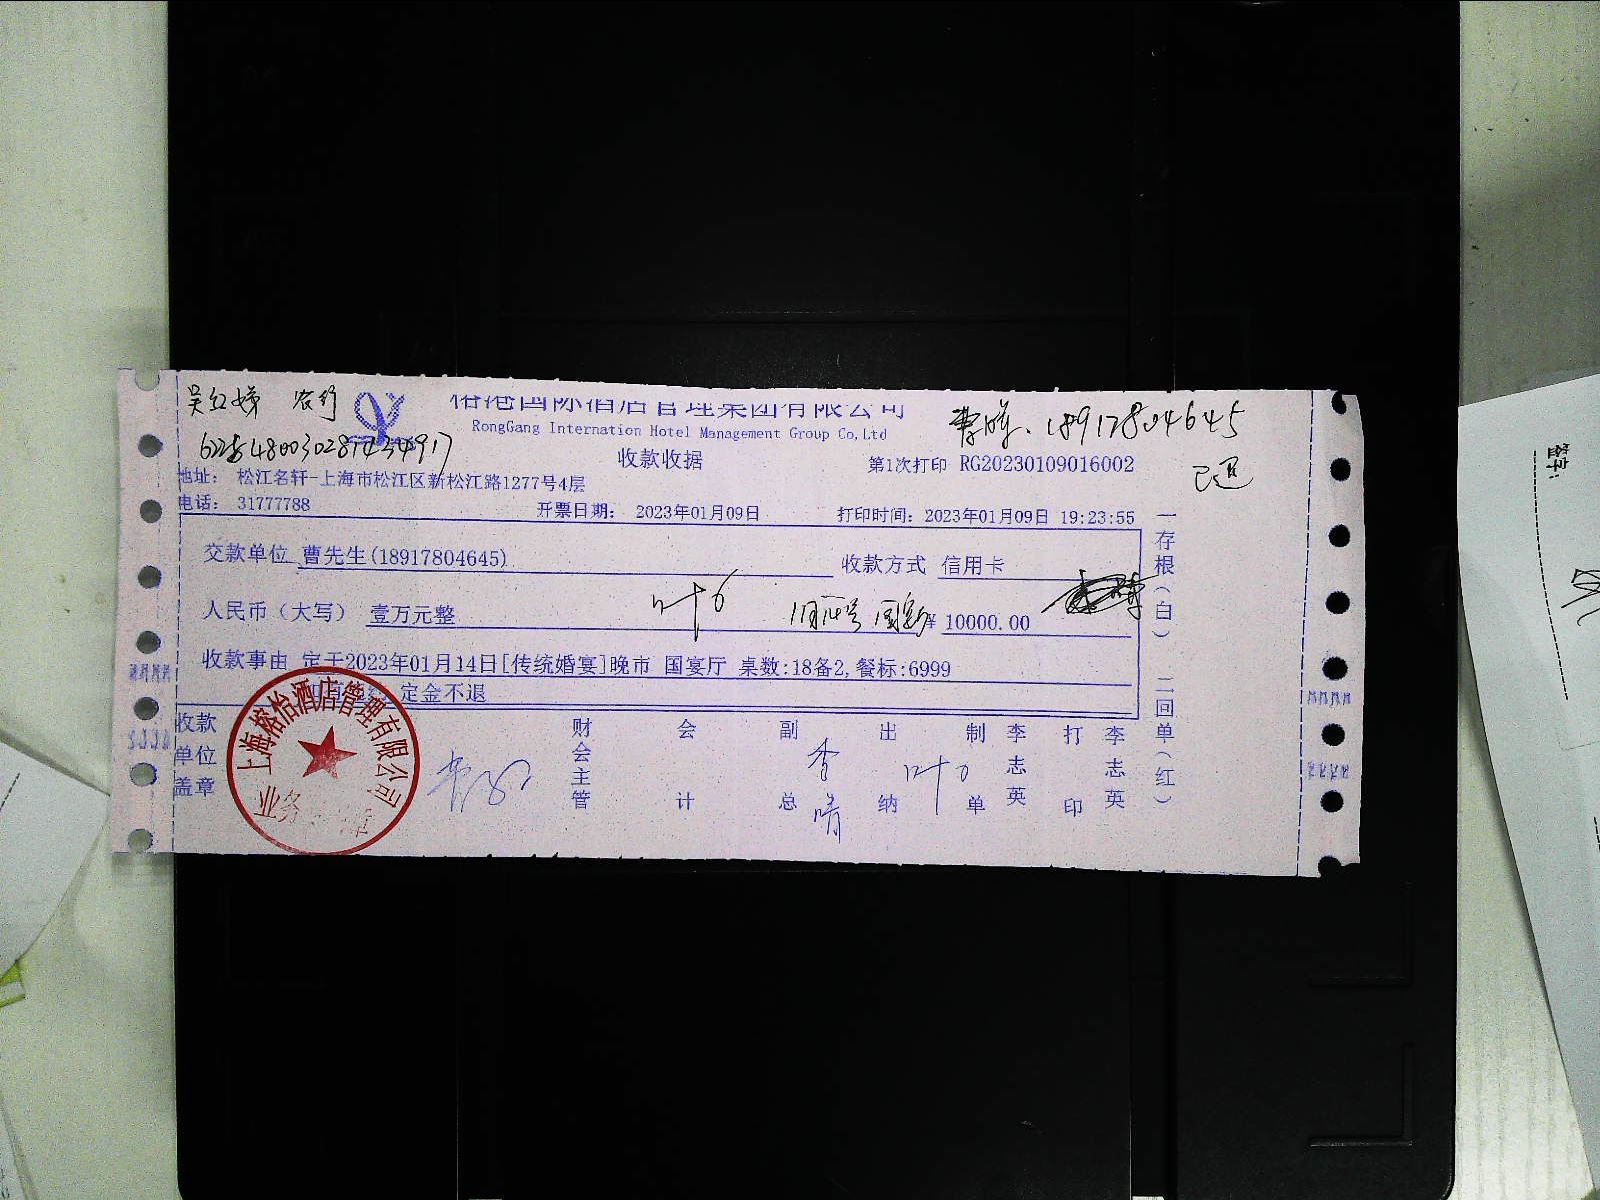 吴红娣 农行
榕港国际酒店管理集团有限公司
RongGang Internation Hotel Management Group Co,Ltd
18917804645
收款收据
第1次打印 RG20230109016002
已退
地址: 松江名轩-上海市松江区新松江路1277号4层
电话: 31777788
开票日期: 2023年01月09日
打印时间: 2023年01月09日 19:23:55
交款单位 曹先生(18917804645)
收款方式 信用卡
人民币(大写) 壹万元整
¥ 10000.00
收款事由 定于2023年01月14日[传统婚宴]晚市 国宴厅 桌数:18备2,餐标:6999
定金不退
一存根(白) 二回单(红)
收款单位盖章
财会主管
会计
副总
李晴
出纳
叶
制单
李志英
打印
李志英
上海榕怡酒店管理有限公司
业务
签字: